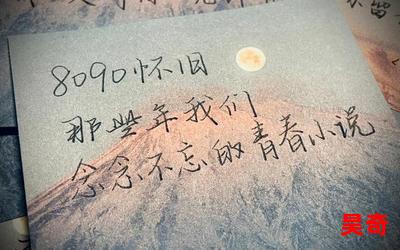 8090怀旧
那些年我们
念念不忘的青春小说
吴奇